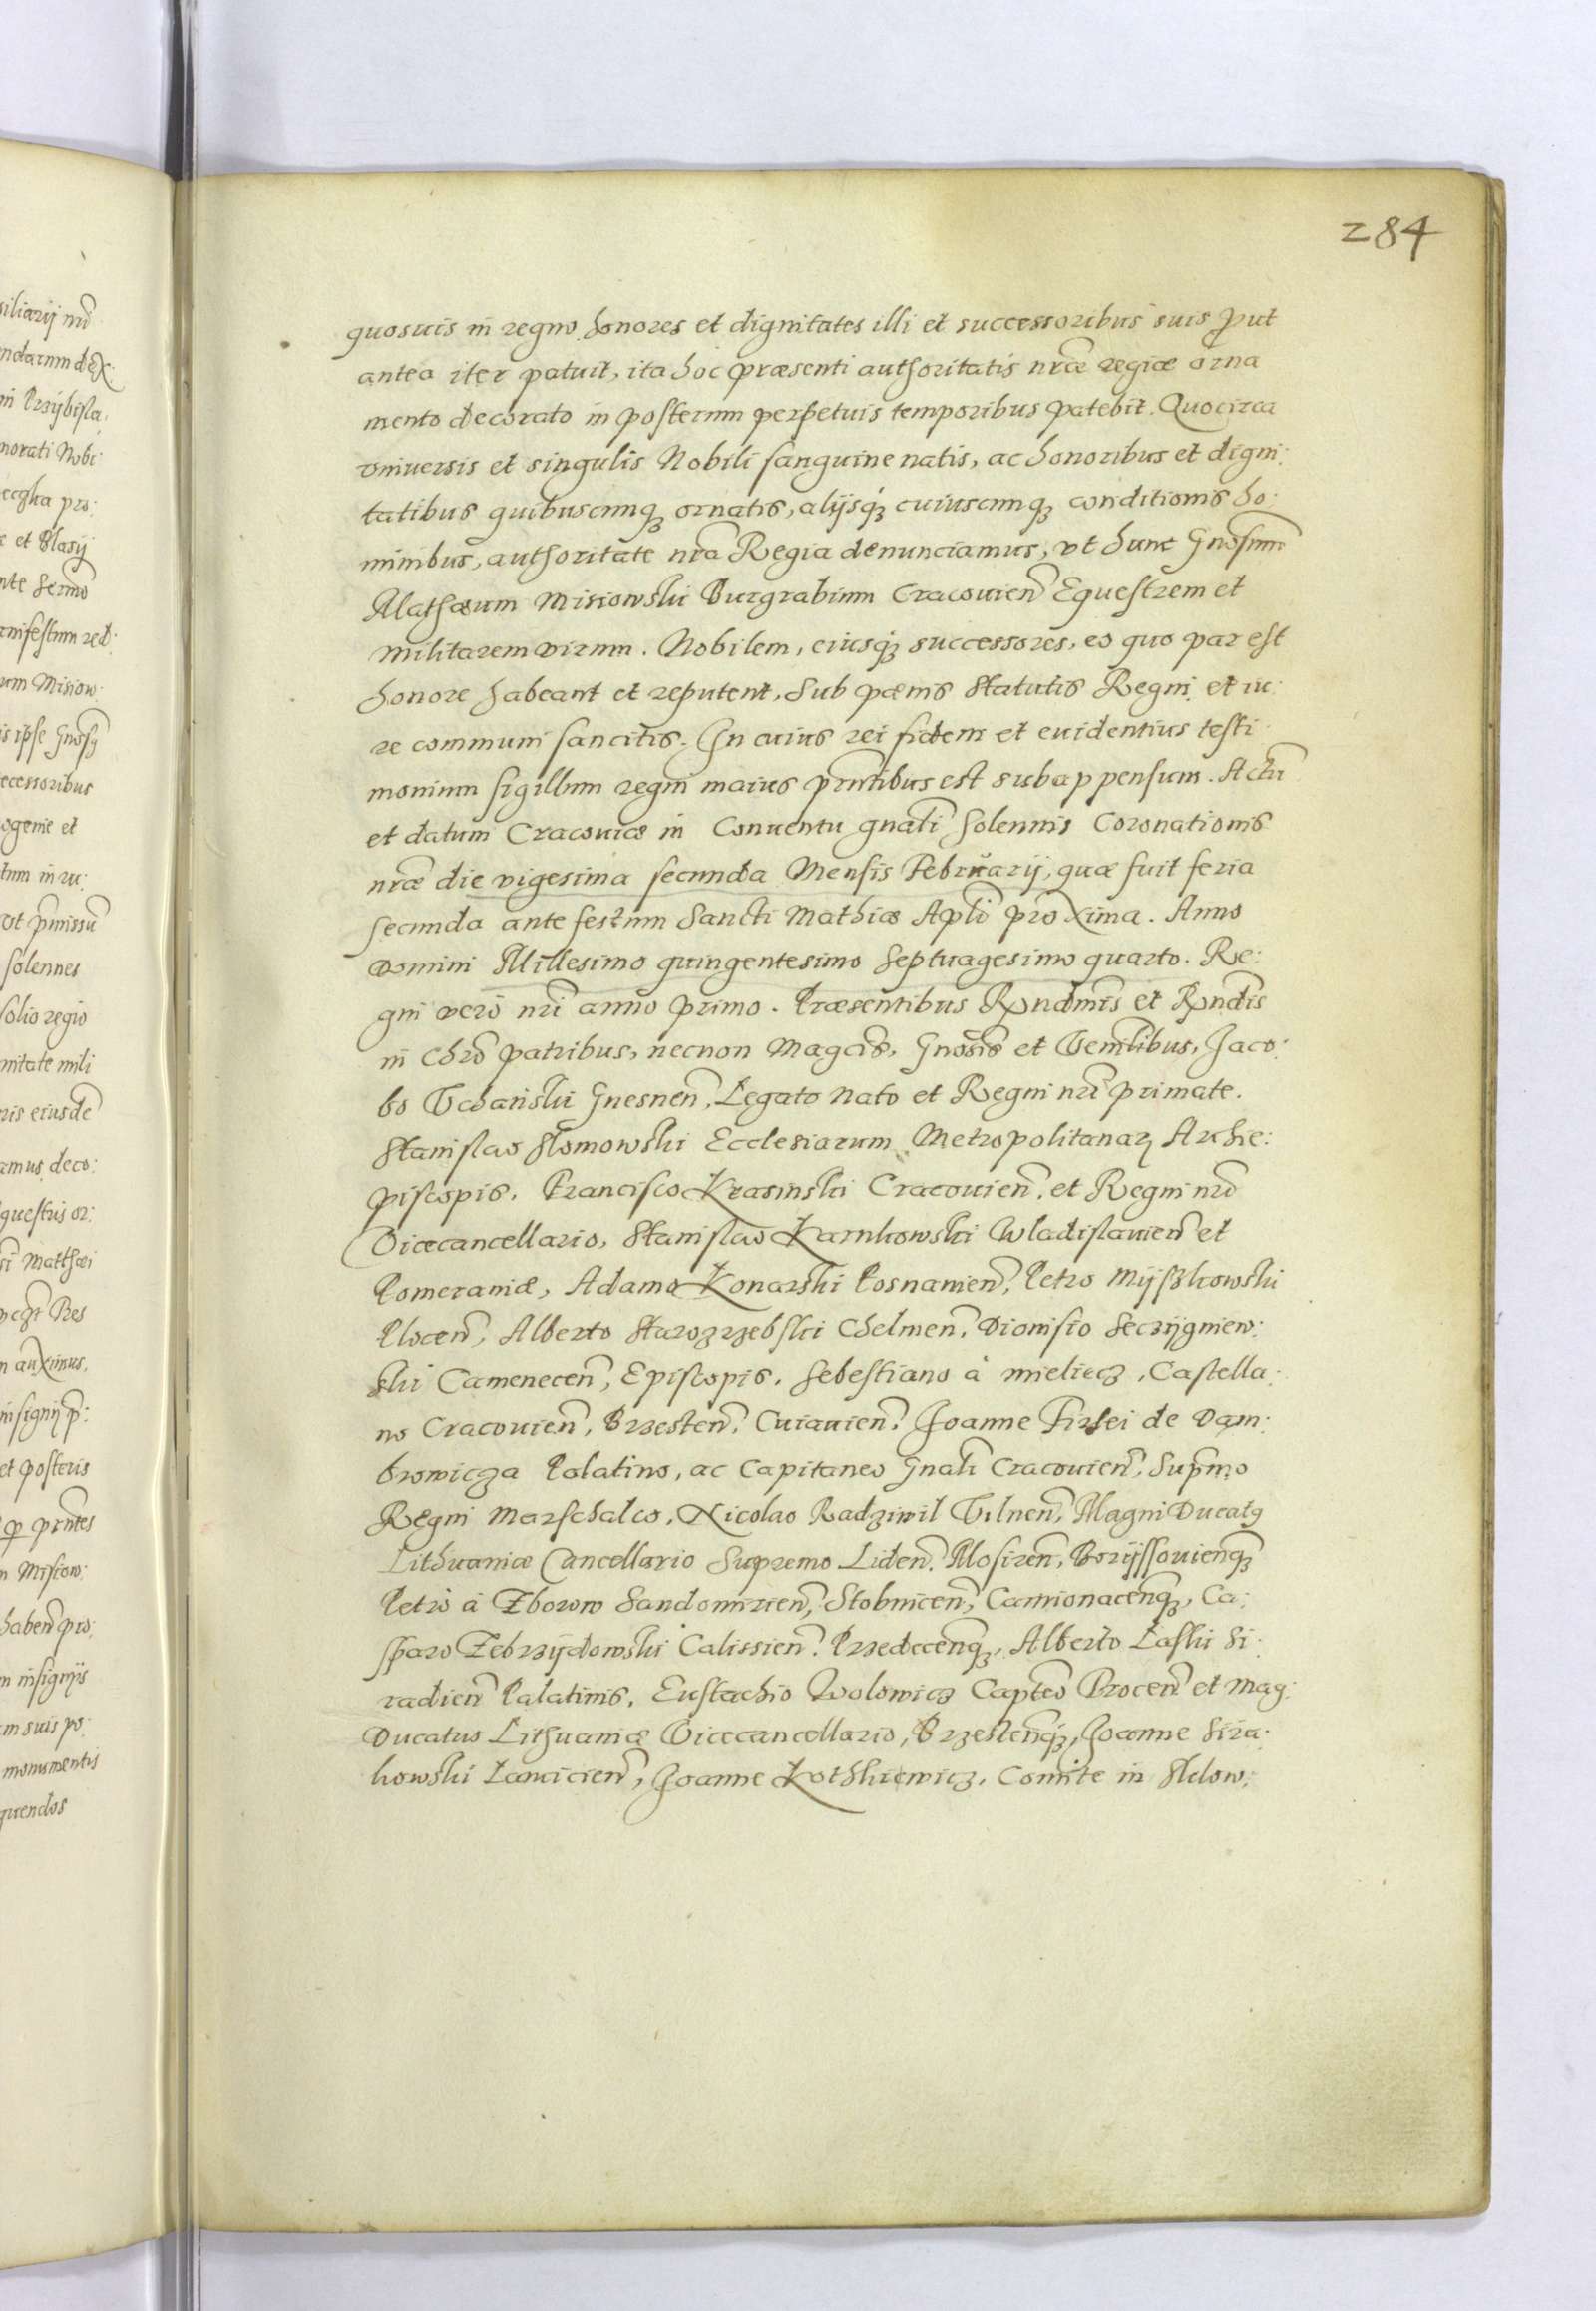 284
quosuis in regno honores et dignitates illi et successoribus suis ꝓut
antea iter patuit, ita hoc præsenti authoritatis nr̃æ regiæ orna
mento decorato in posterum perpetuis temporibus patebit. Quocirca
vniuersis et singulis Nobili sanguine natis, ac honoribus et digni:
tatibus quibuscunqꝫ ornatis, alijsqꝫ cuiuscunqꝫ conditionis ho:
minibus, authoritate nr̃a Regia denunciamus, vt hunc Gnosum̃
Mathæum Misiowski Burgrabium Cracouien̄ Equestrem et
militarem virum. Nobilem, eiusqꝫ successores, eo quo par est
honore habeant et reputent, sub pœnis Statutis Regni et iu:
re communi sancitis. In cuius rei fidem et euidentius testi
monium sigillum regni maius pr̃ntibus est subappensum. Actũ
et datum Cracouiæ in Conuentu gnãli solennis Coronationis
nr̃æ die vigesima secunda Mensis Februarij, quæ fuit feria
secunda ante festum Sancti Mathiæ Apl̃i proxima. Anno
Domini Millesimo quingentesimo Septuagesimo quarto. Re:
gni vero nr̃i anno primo. Præsentibus Rꝓndmĩs et Rꝓndĩs
in Chr̃o patribus, necnon Magcĩs, Gnosĩs et Venr̃libus, Jaco:
bo Vchański Gnesnen̄, Legato Nato et Regni nr̃i primate.
Stanislao Slomowski Ecclesiarum Metropolitanaꝝ Archie:
piscopis. Francisco Krasinski Cracouien̄. et Regni nr̃o
Vicecancellario, Stanislao Karnkowski Wladislauien̄ et
Pomeraniæ, Adamo Konarski Posnanien̄, Petro Mijszkowski
Plocen̄, Alberto Starozrzebski Chelmen̄, Dionisio Seczijgniew:
ski Camenecen̄, Episcopis. Sebestiano à mieliecz, Castella:
no Cracouien̄, Brzesten̄, Cuiauien̄. Joanne Firlei de Dam:
browicza Palatino, ac Capitaneo Gnãli Cracouien̄, Supr̃mo
Regni Marschalco, Nicolao Radziwil Vilnen̄, Magni Ducatꝯ
Lithuaniæ Cancellario Supremo Liden̄. Mosiren̄, Borijssouien̄qꝫ
Petro à Zborow Sandomirien̄, Stobnicen̄, Camionacen̄qꝫ, Ca:
sparo Zebrzijdowski Calissien̄. Przedecen̄qꝫ, Alberto Laski Si:
radien̄ Palatinis, Eustachio Wolowicz Captẽo Trocen̄ et Mag:
Ducatus Lithuaniæ Vicecancellario, Brzesten̄qꝫ, Joanne Sira:
kowski Lancicien̄, Joanne Kothkiewicz, Comite in Sklow: